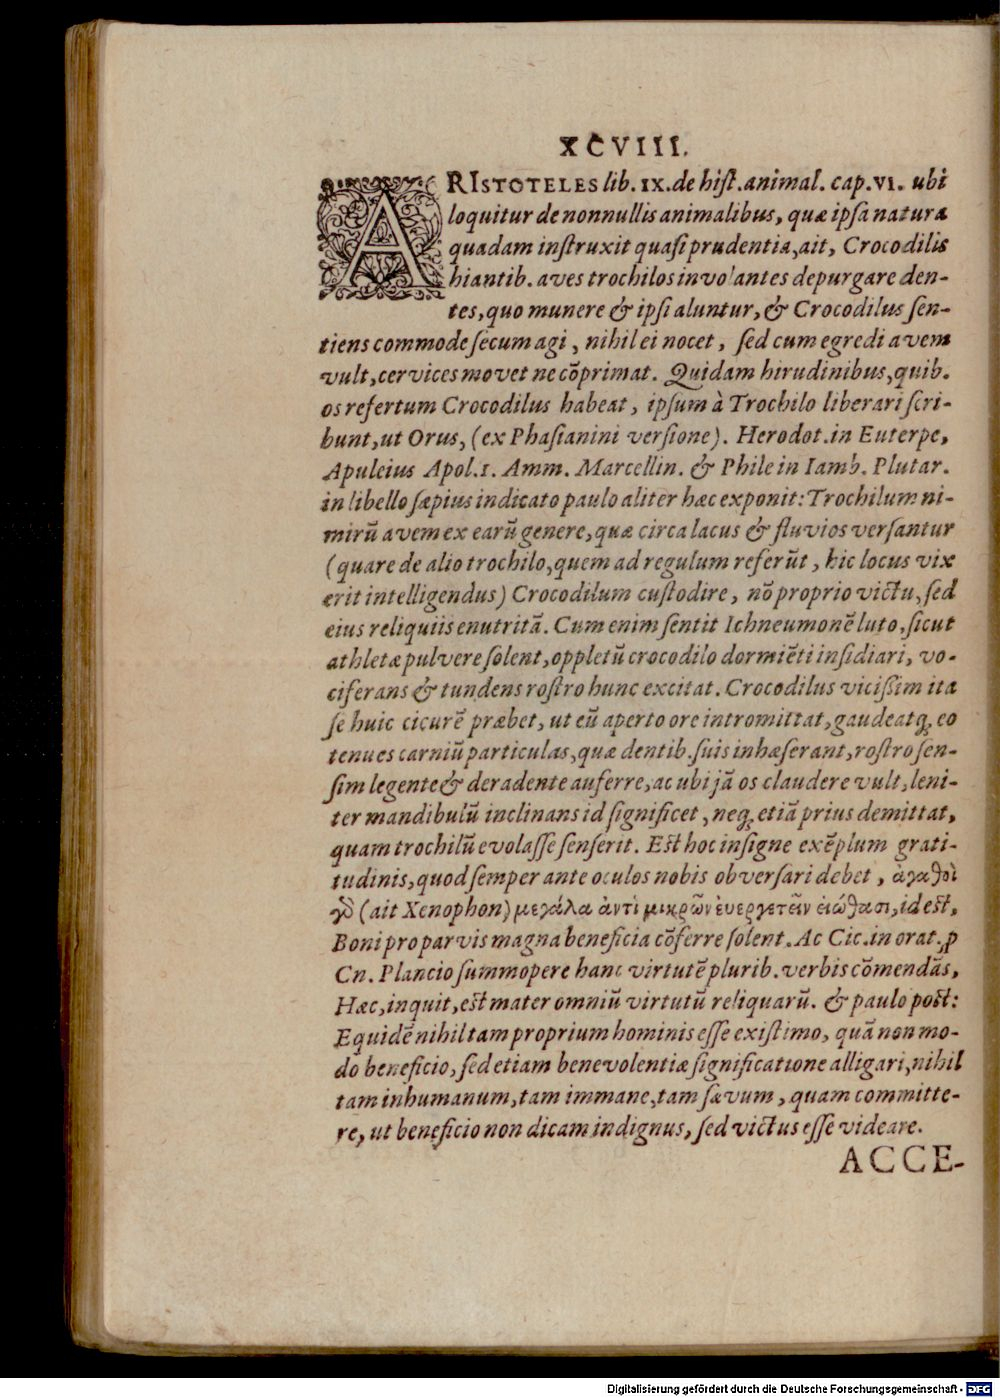 XCVIII.
ARISTOTELES lib. IX. de hiſt. animal. cap. VI. ubi
loquitur de nonnullis animalibus, quæ ipſa natura
quadam inſtruxit quaſi prudentia, ait, Crocodilis
hiantib. aves trochilos involantes depurgare den-
tes, quo munere & ipſi aluntur, & Crocodilus ſen-
tiens commode ſecum agi, nihil ei nocet, ſed cum egredi avem
vult, cervices movet ne cõprimat. Quidam hirudinibus, quib.
os refertum Crocodilus habeat, ipſum à Trochilo liberari ſcri-
bunt, ut Orus, (ex Phaſianini verſione). Herodot. in Euterpe,
Apuleius Apol. 1. Amm. Marcellin. & Phile in Iamb. Plutar.
in libello ſæpius indicato paulo aliter hæc exponit: Trochilum ni-
mirũ avem ex earũ genere, quæ circa lacus & fluvios verſantur
(quare de alio trochilo, quem ad regulum referũt, hic locus vix
erit intelligendus) Crocodilum cuſtodire, nõ proprio victu, ſed
eius reliquiis enutritã. Cum enim ſentit Ichneumonẽ luto, ſicut
athletæ pulvere ſolent, oppletũ crocodilo dormiẽti inſidiari, vo-
ciferans & tundens roſtro hunc excitat. Crocodilus viciſſim ita
ſe huic cicurẽ præbet, ut eũ aperto ore intromittat, gaudeatq; eo
tenues carniũ particulas, quæ dentib. ſuis inhæſerant, roſtro ſen-
ſim legente & deradente auferre, ac ubi jã os claudere vult, leni-
ter mandibulũ inclinans id ſignificet, neq; etiã prius demittat,
quam trochilũ evolaſſe ſenſerit. Eſt hoc inſigne exẽplum grati-
tudinis, quod ſemper ante oculos nobis obverſari debet, ἀγαθοὶ
γὸ (ait Xenophon) μεγάλα ἀντὶ μικρῶν ἐυεργετεῖν ἐιώθασι, id eſt,
Boni pro parvis magna beneficia cõferre ſolent. Ac Cic. in orat. ꝓ
Cn. Plancio ſummopere hanc virtutẽ plurib. verbis cõmendãs,
Hæc, inquit, eſt mater omniũ virtutũ reliquarũ. & paulo poſt:
Equidẽ nihil tam proprium hominis eſſe exiſtimo, quã non mo-
do beneficio, ſed etiam benevolentiæ ſignificatione alligari, nihil
tam inhumanum, tam immane, tam ſævum, quam committe-
re, ut beneficio non dicam indignus, ſed victus eſſe videare.
ACCE-
Digitalisierung gefördert durch die Deutsche Forschungsgemeinschaft - DFG